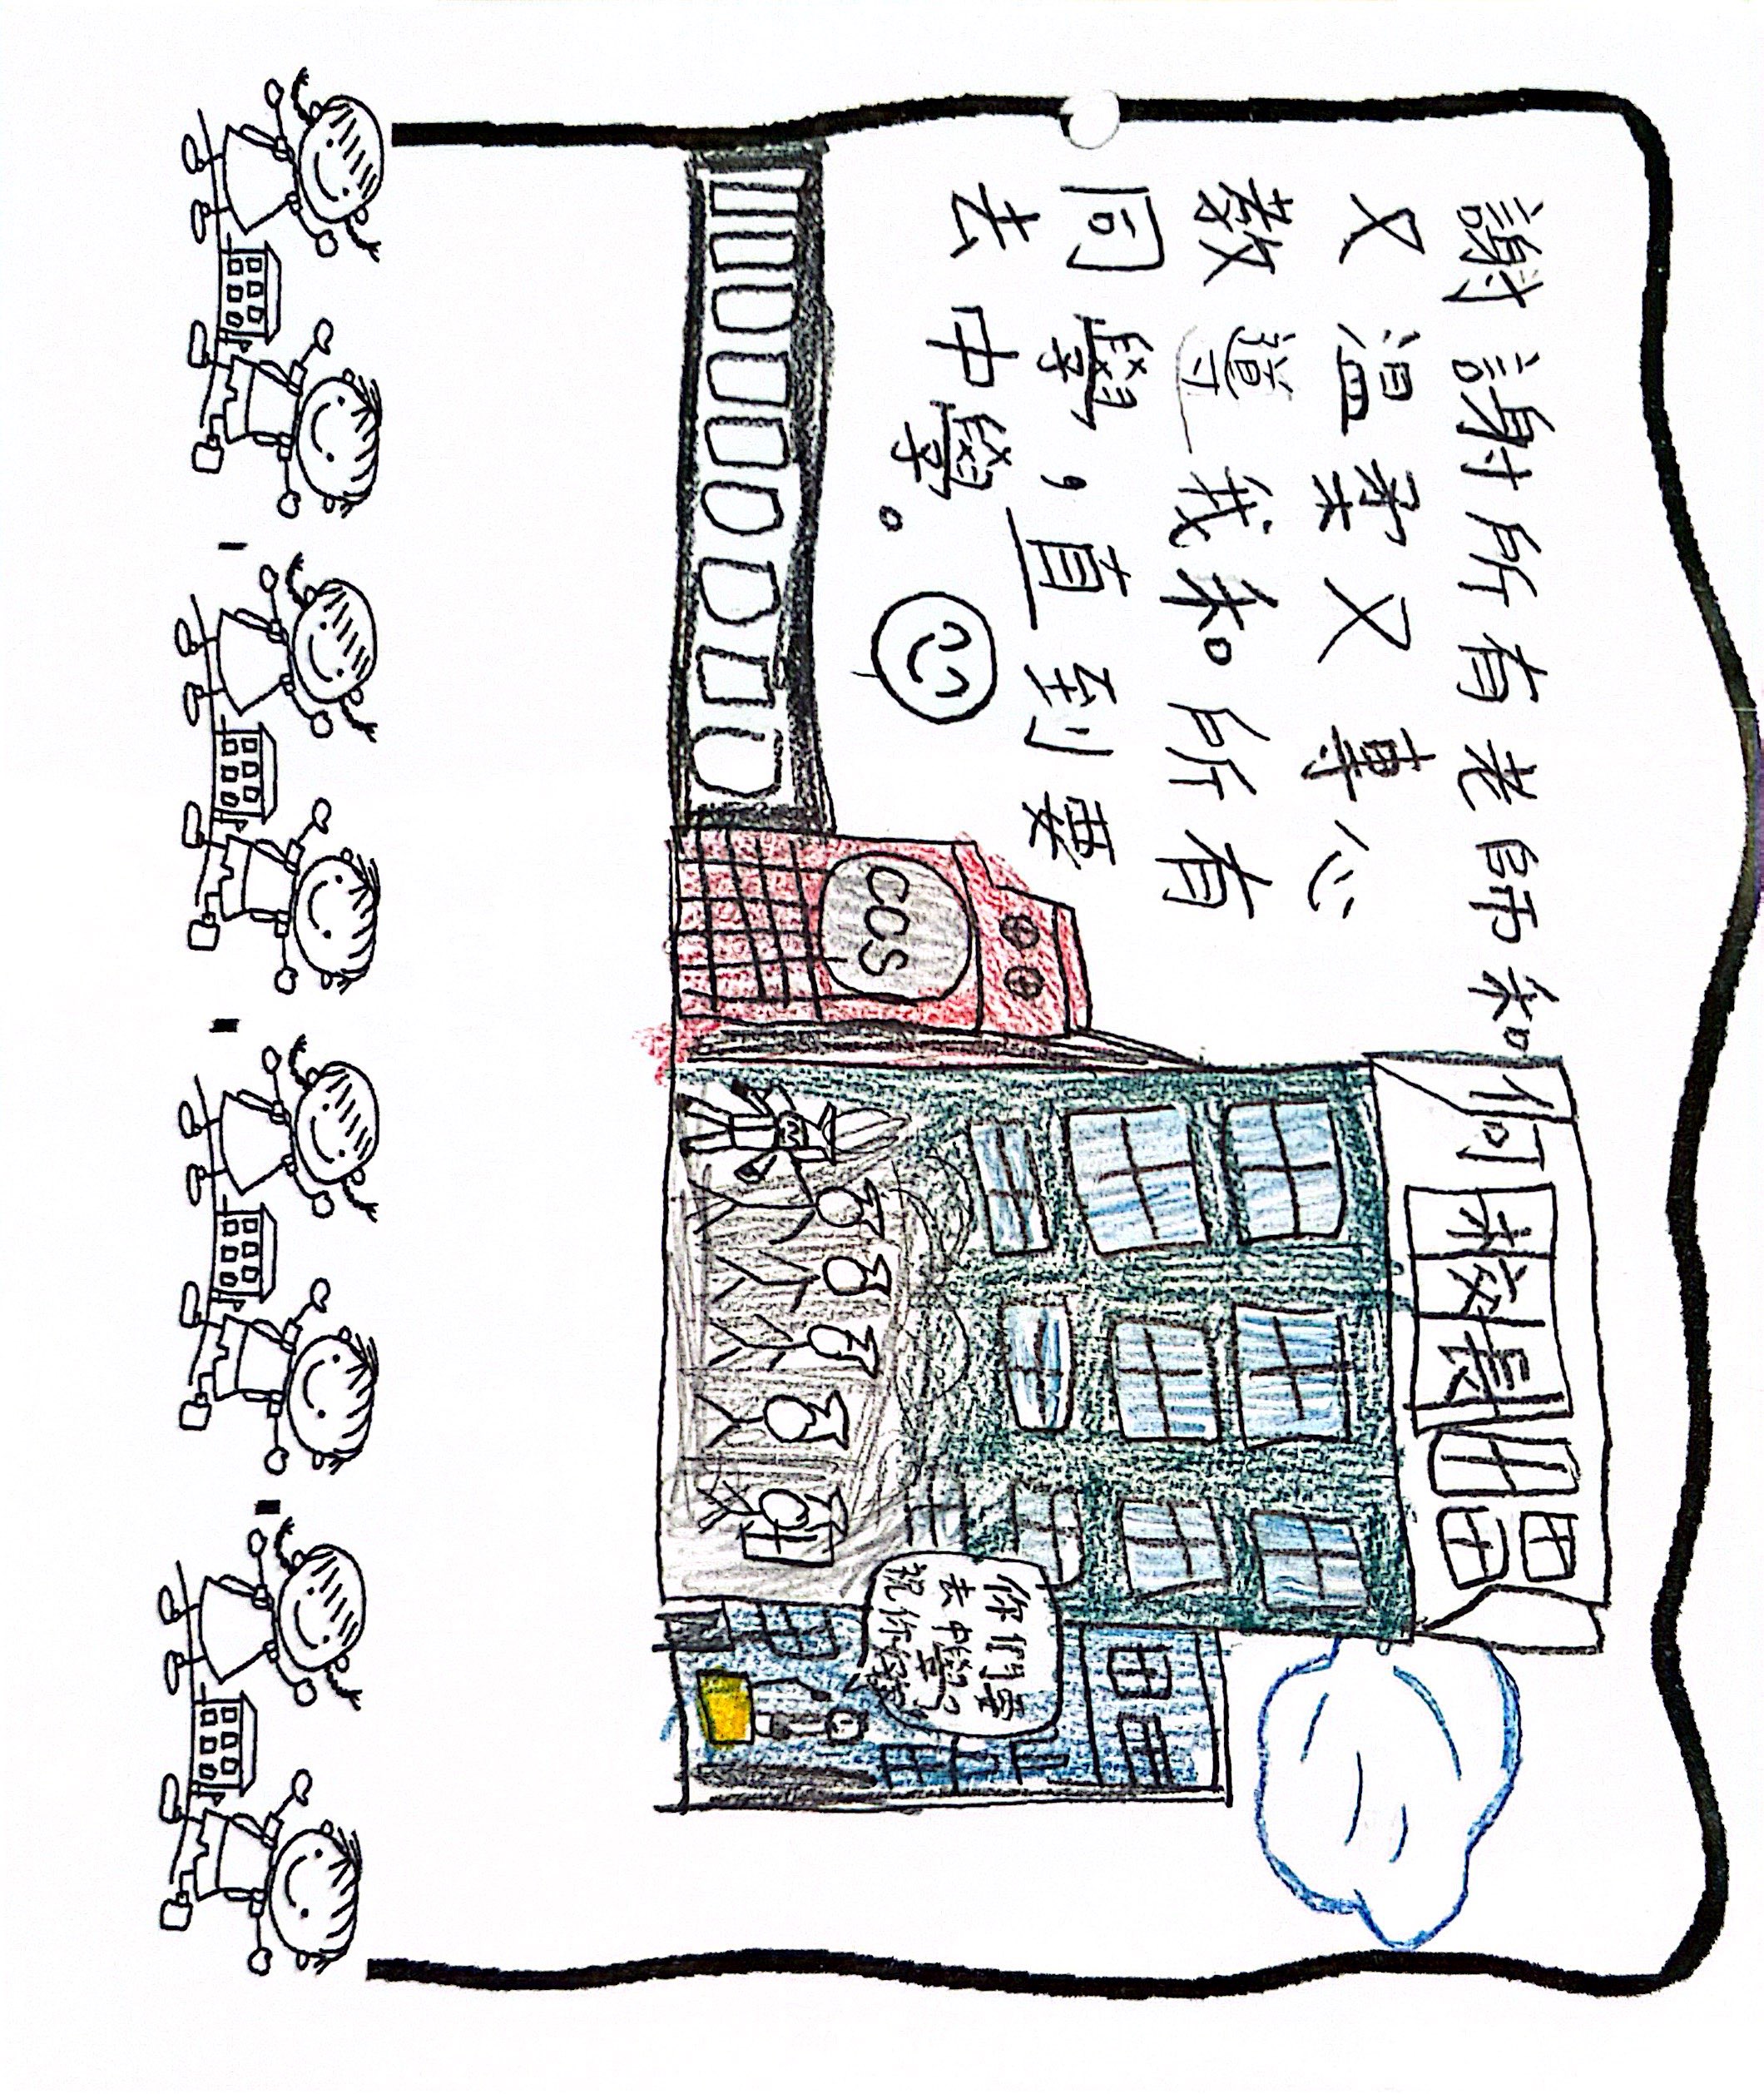 謝謝所有老師和何校長
又溫柔又專心
教導我和所有
同學，直到要
去中學。
COS
你們要
去中學了
祝你